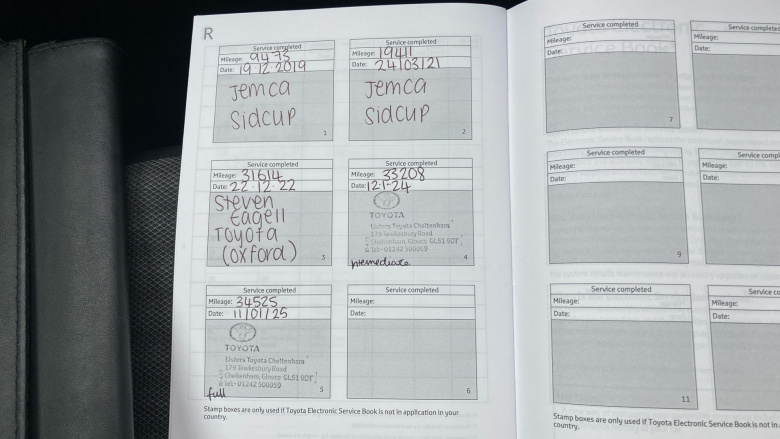 R
Service completed
Mileage: 9473
Date: 19.12.2019
Jemca
Sidcup
1
Service completed
Mileage: 19411
Date: 24/03/21
Jemca
Sidcup
2
Service completed
Mileage: 31614
Date: 22.12.22
Steven
Eagell
Toyota
(oxford)
3
Service completed
Mileage: 33208
Date: 12-1-24
TOYOTA
Listers Toyota Cheltenham
179 Tewkesbury Road
Cheltenham, Gloucs GL51 9DT
Tel: 01242 500059
4
Service completed
Mileage: 34525
Date: 11/01/25
TOYOTA
Listers Toyota Cheltenham
179 Tewkesbury Road
Cheltenham, Gloucs GL51 9DT
Tel: 01242 500059
full
5
Service completed
Mileage:
Date:
6
Stamp boxes are only used if Toyota Electronic Service Book is not in application in your
country.
Mileage:
Date:
7
Service completed
Mileage:
Date:
Service completed
Mileage:
Date:
9
Mileage:
Date:
Service completed
Mileage:
Date:
11
Mileage:
Date:
Stamp boxes are only used if Toyota Electronic Service Book is not in
country.